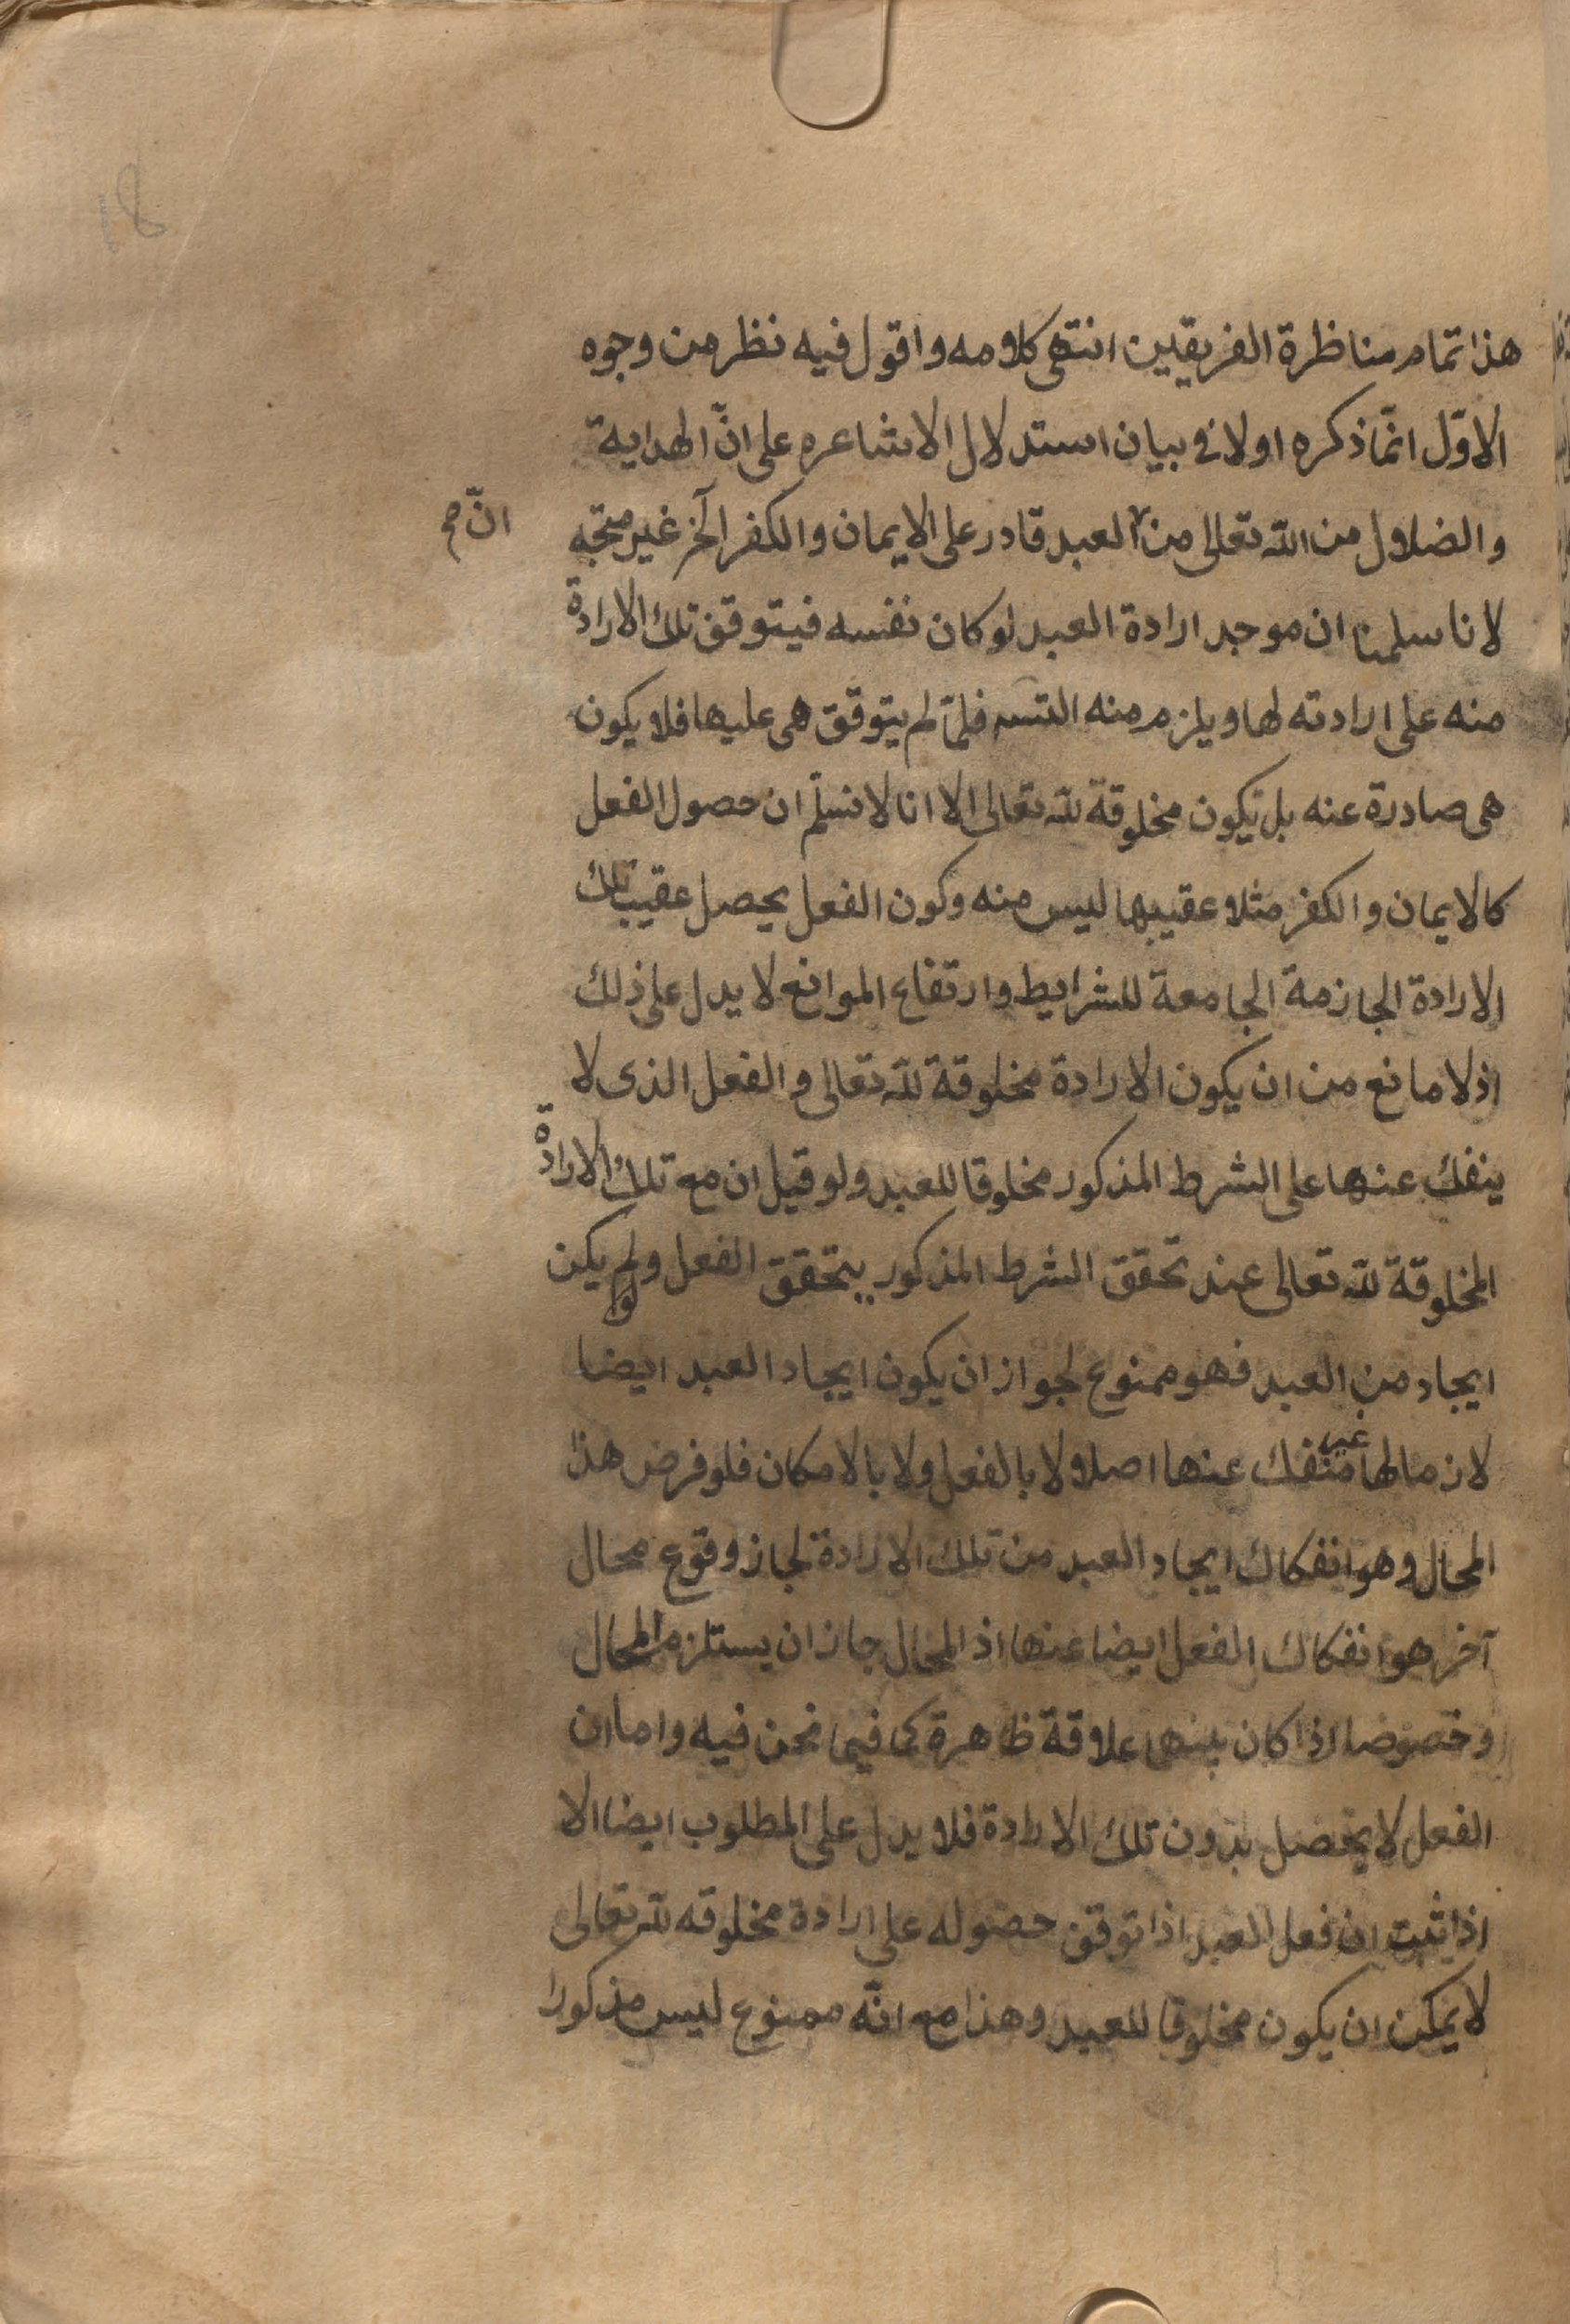 هذا تمام مناظرة الفريقين انتهى كلامه واقول فيه نظر من وجوه
الاوّل انمّا ذكره اولا فى بيان استدلال الاشاعره على انّ الهداية
والضلال من الله تعالى من العبد قادر على الايمان والكفر آلخ غير متجه
انّ صح
لانا سلمنا ان موجد ارادة العبد لو كان نفسه فيتوقف تلك الارادة
منه على ارادته لها ويلزم منه التسه فلمّا لم يتوقف هى عليها فلا يكون
هى صادرة عنه بل يكون مخلوقة لله تعالى الا انا لا نسلّم ان حصول الفعل
كالايمان والكفر مثلا عقيبها ليس منه وكون الفعل يحصل عقيب تلك
الارادة الجازمة الجامعة للشرايط وارتفاع الموانع لا يدل على ذلك
اذ لا مانع من ان يكون الارادة مخلوقة لله تعالى والفعل الذى لا
ينفك عنها على الشرط المذكور مخلوقا للعبد ولو قيل ان مع تلك الارادة
المخلوقة لله تعالى عند تحقق الشرط المذكور يتحقق الفعل ولو لم يكن
ايجاد من العبد فهو ممنوع لجواز ان يكون ايجاد العبد ايضا
لازما لها غير منفك عنها اصلا ولا بالفعل ولا بالامكان فلو فرض هذا
المحال وهو انفكاك ايجاد العبد من تلك الارادة لجاز وقوع محال
آخر هو انفكاك الفعل ايضا عنها اذ المحال جاز ان يستلزم المحال
وخصوصا اذا كان بينهما علاقة ظاهرة كما فيما نحن فيه واما ان
الفعل لا يحصل بدون تلك الارادة فلا يدل على المطلوب ايضا الا
اذا ثبت ان فعل العبد اذا توقف حصوله على ارادة مخلوقه لله تعالى
لا يمكن ان يكون مخلوقا للعبد وهذا مع انّه ممنوع ليس مذكورا